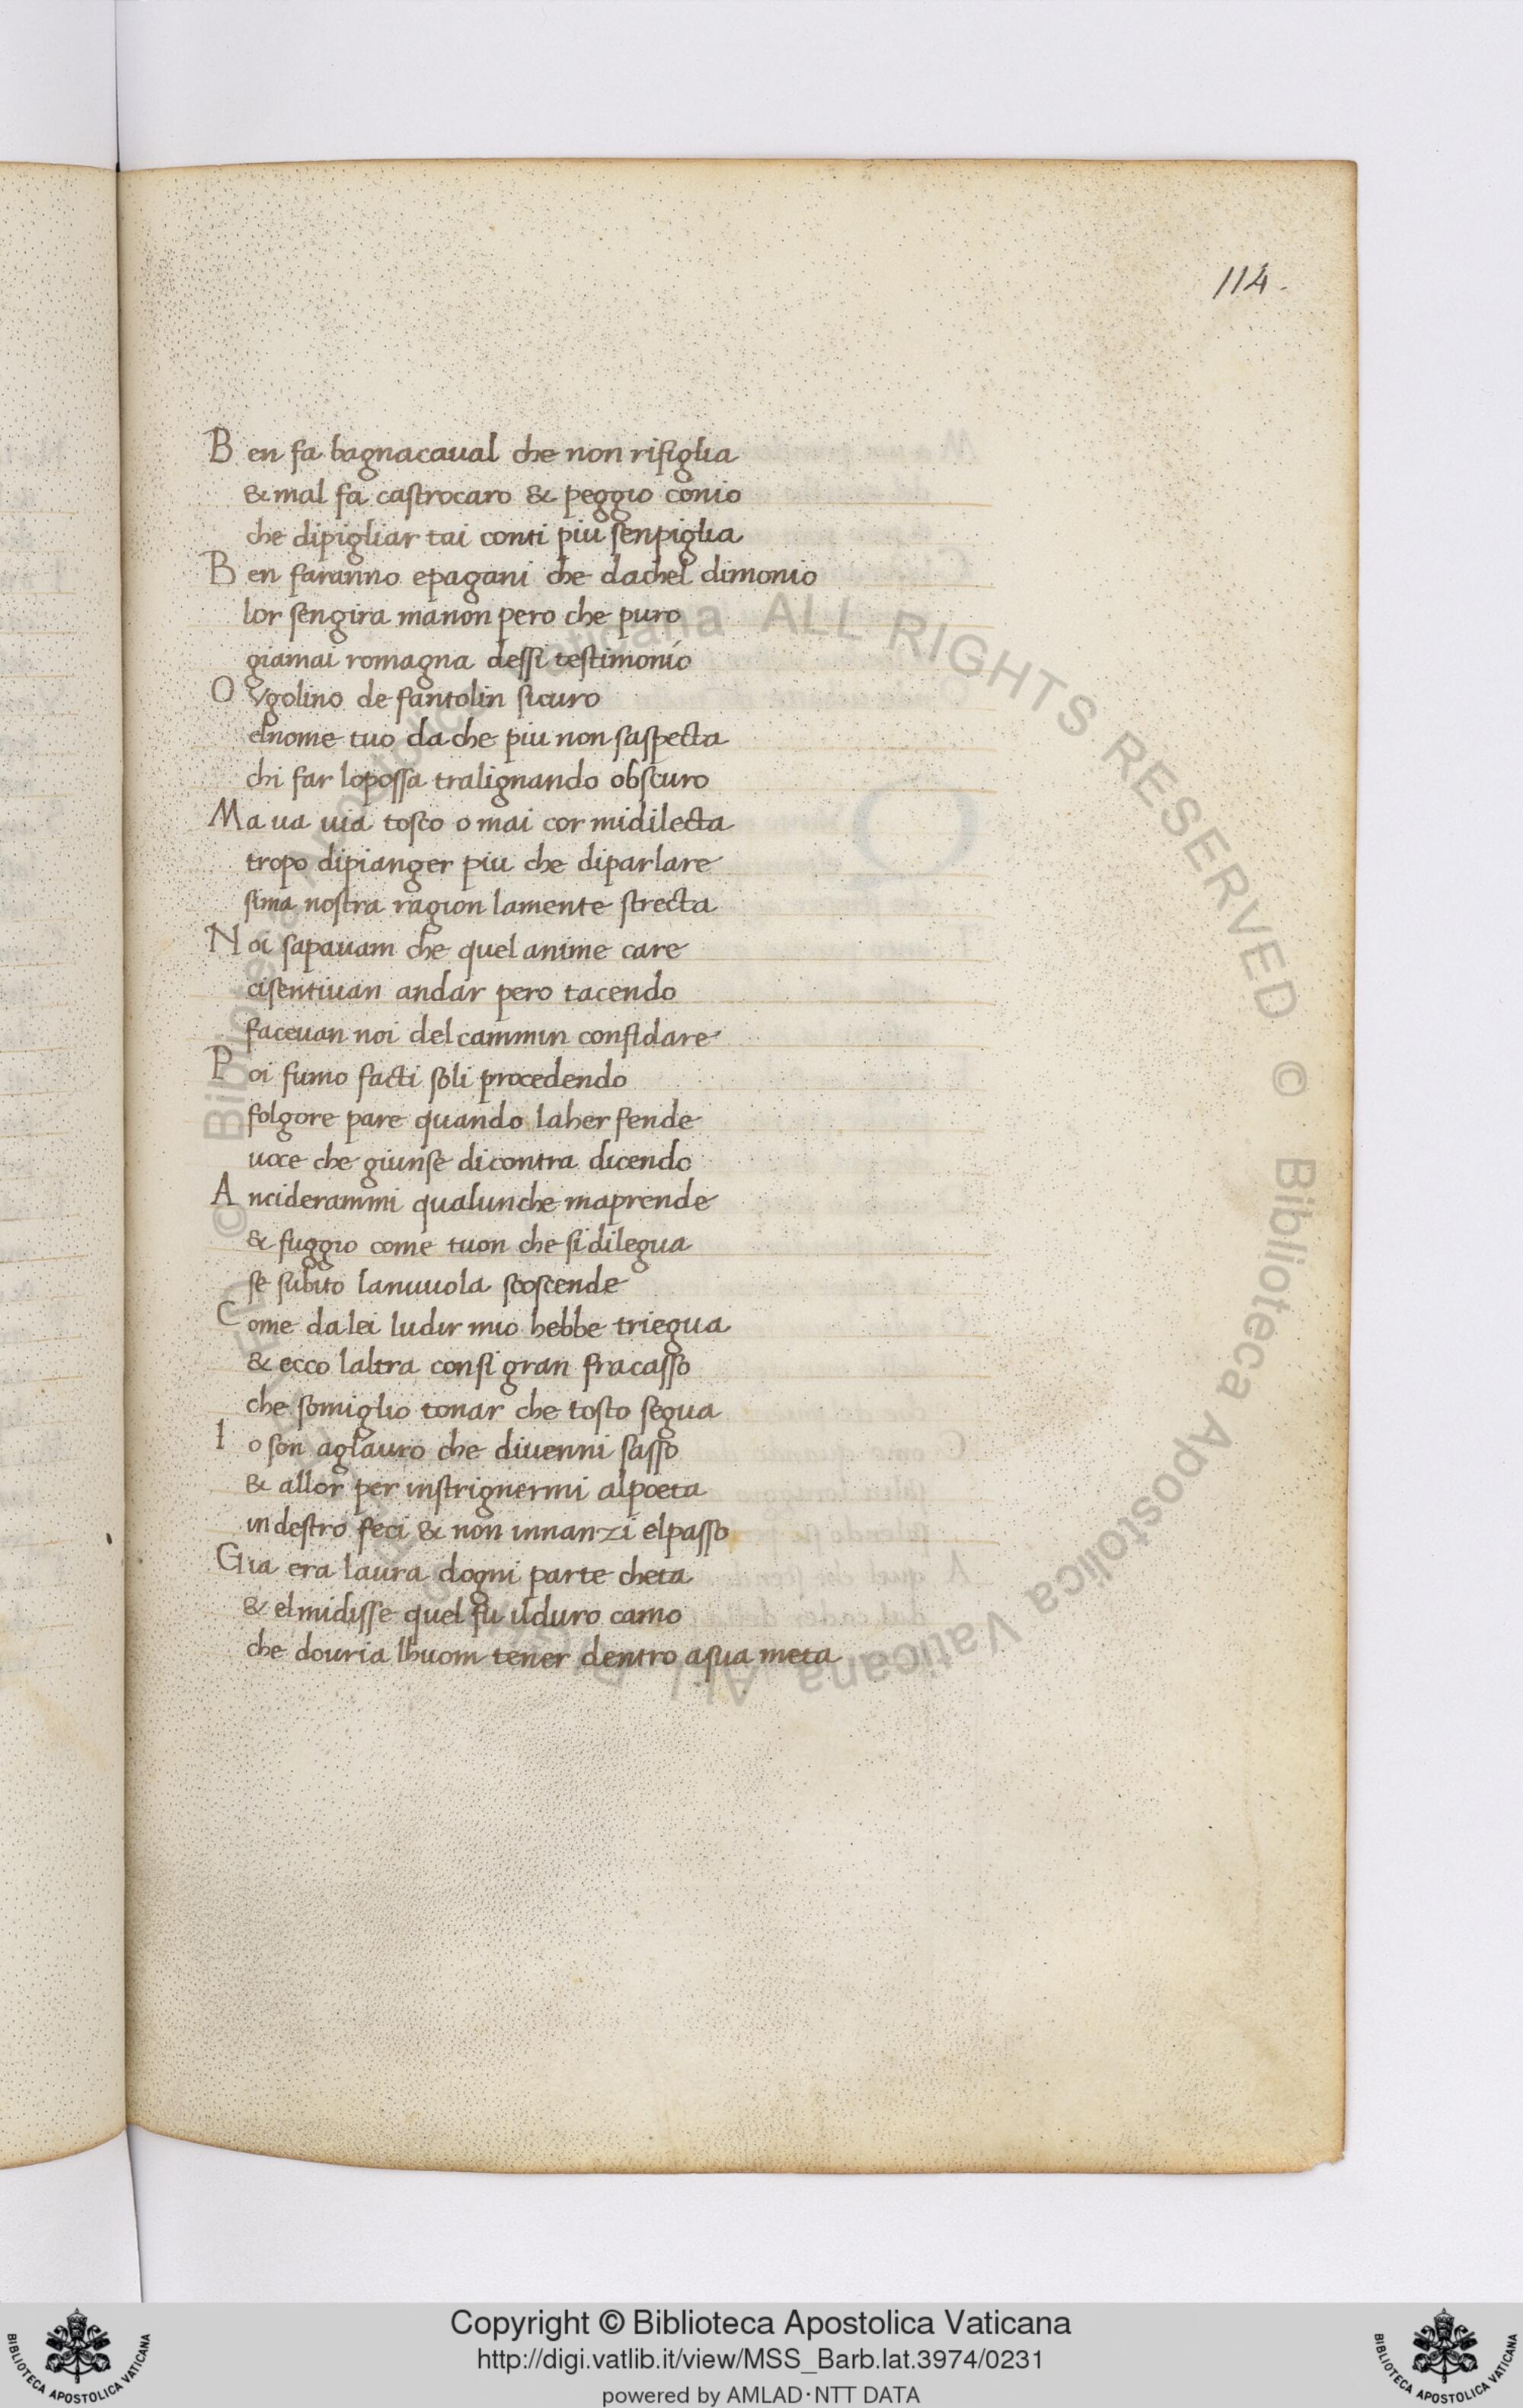 114.
Ben fa bagnacaual che non rifiglia
& mal fa castrocaro & peggio conio
che dipigliar tai conti piu senpiglia
Ben faranno epagani che dachel dimonio
lor sengira manon pero che puro
giamai romagna dessi testimonio
O Vgolino de fantolin sicuro
elnome tuo da che piu non saspecta
chi far lopossa tralignando obscuro
Ma ua uia tosco o mai cor midilecta
tropo dipianger piu che diparlare
sima nostra ragion lamente strecta
Noi sapauam che quel anime care
cisentiuan andar pero tacendo
faceuan noi del cammin confidare
Poi fumo facti soli procedendo
folgore pare quando laher fende
uoce che giunse dicontra dicendo
Anciderammi qualunche maprende
& fuggio come tuon che sidilegua
se subito lanuuola scoscende
Come da lei ludir mio hebbe triegua
& ecco laltra consi gran fracasso
che somiglio tonar che tosto segua
Io son aglauro che diuenni sasso
& allor per instrignermi alpoeta
indestro feci & non innanzi elpasso
Gia era laura dogni parte cheta
& elmidisse quel fu ilduro camo
che douria lhuom tener dentro asua meta
© Biblioteca Apostolica Vaticana ALL RIGHTS RESERVED © Biblioteca Apostolica Vaticana ALL RIGHTS RESERVED
Copyright © Biblioteca Apostolica Vaticana
http://digi.vatlib.it/view/MSS_Barb.lat.3974/0231
powered by AMLAD·NTT DATA
BIBLIOTECA APOSTOLICA VATICANA
BIBLIOTECA APOSTOLICA VATICANA